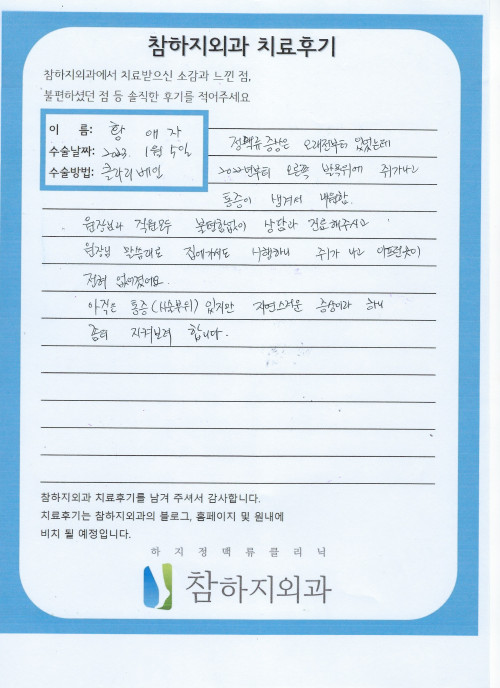 참하지외과 치료후기
참하지외과에서 치료받으신 소감과 느낀 점,
불편하셨던 점 등 솔직한 후기를 적어주세요
이 름: 황 애 자
수술날짜: 2023. 1월 5일
수술방법: 클라리베인
정맥류 증상은 오래전부터 있었는데
2022년부터 오른쪽 발목위에 쥐가나고
통증이 생겨서 내원함.
원장님과 직원모두 불편함없이 상담과 진료해주시고
원장님 말씀대로 집에가서도 시행하니 쥐가 나고 아프던곳이
전혀 없어졌어요.
아직은 통증(시술부위) 있지만 자연스러운 증상이라 하니
좀더 지켜보려 합니다.
참하지외과 치료후기를 남겨 주셔서 감사합니다.
치료후기는 참하지외과의 블로그, 홈페이지 및 원내에
비치 될 예정입니다.
하지정맥류클리닉
참하지외과